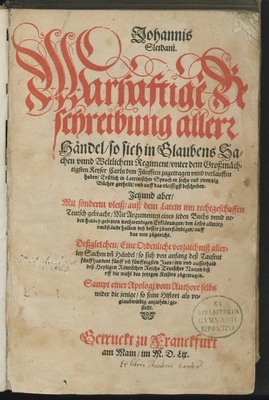 Johannis
Sleidani.
Warhafftige Be
schreibung aller
Händel / so sich in Glaubens Sa
chen vnnd Weltlichem Regiment / vnter dem Großmäch
tigsten Keyser Carln dem fünfften zugetragen vnnd verlauffen
haben / Erstlich in Lateinischer Sprach in sechs vnd zwentzig
Bücher getheilt / vnd auff das fleissigst beschriben.
Jetzund aber /
Mit sonderm vleiß / auß dem Latein inn rechtgeschaffen
Teutsch gebracht / Mit Argumenten eines jeden Buchs vnnd ne
ben hinzu gesetzten nothwendigen Erklärungen / den Leser allerley
vmbstände halben deß besser zuverständigen / auff
das new zugericht.
Deßgleichen / Eine Ordenliche verzeichnuß aller
ley Sachen vñ Händel / so sich von anfang deß Tausent
fünffhundert fünff vñ fünfftzigsten Jars / inn vnd ausserhalb
deß Heyligen Römischen Reichs Teutscher Nation biß
auff die wahl deß jetzigen Keysers zugetragen.
Sampt einer Apologi vom Authore selbs
wider die jenige / so seine Histori als vn
glaubwirdig anziehen / ge
stellt.
Getruckt zu Franckfurt
am Main / im M. D. Lix.
EX
BIBLIOTHECA
GYMNASII
BIPONTINA